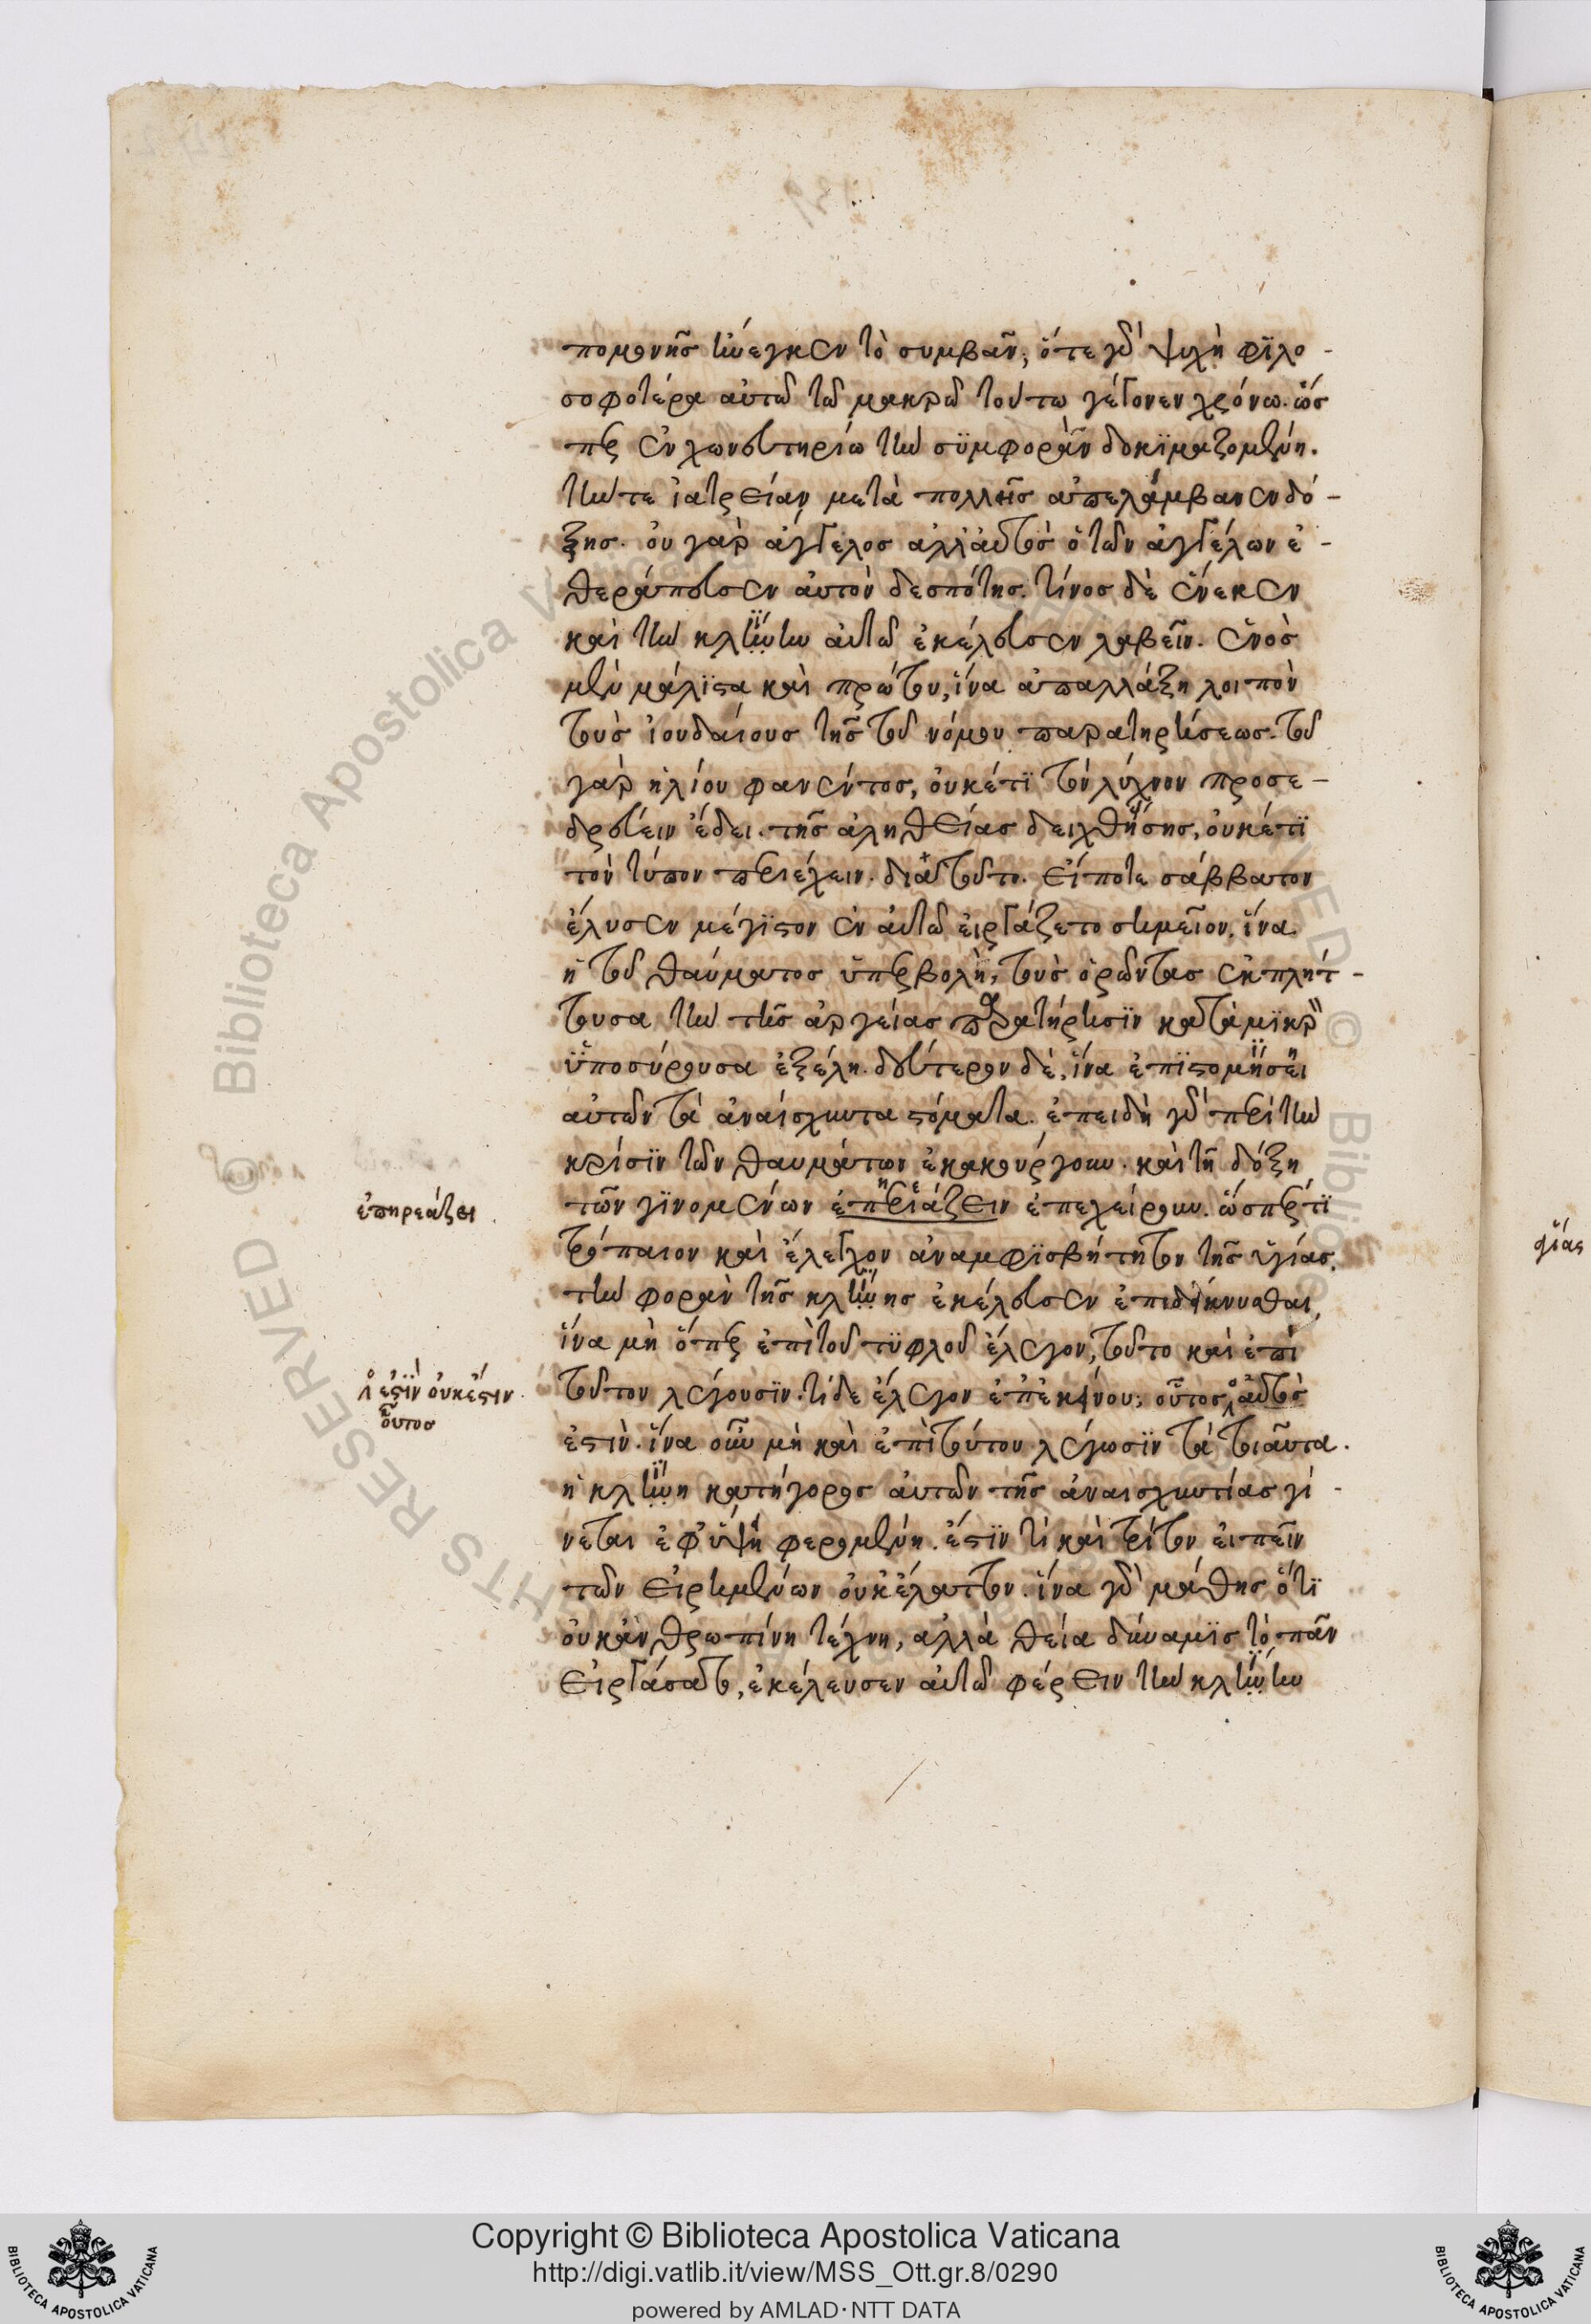 πομονῆς ἤνεγκεν τὸ συμβὰν, ὅτε γὰρ ψυχὴ φϊλο-
σοφοτέρα αὐτῶ τῶ μακρῶ τούτω γέγονεν χρόνω. ὥσ
περ ἐν χωνευτηρίω τῆ συμφορὰν δοκϊμαζομένη.
τήν τε ἰατρείαν μετὰ πολλῆς ἀπελάμβανεν δό-
ξης. οὐ γὰρ ἄγγελος ἀλλ' αὐτὸς ὁ τῶν ἀγγέλων ἐ-
θεράπευσεν αὐτὸν δεσπότης. τίνος δὲ ἕνεκεν
καὶ τὴν κλίνην αὐτῶ ἐκέλευσεν λαβεῖν. ἑνὸς
μὲν μάλϊστα καὶ πρώτου, ἵνα ἀπαλλάξη λοιπὸν
τοὺς ἰουδαίους τῆς τοῦ νόμου παρατηρήσεως. τοῦ
γὰρ ἡλίου φανέντος, οὐκέτϊ τὸν λύχνον προσε-
δρεύειν ἔδει. τῆς ἀληθείας δειχθήσης, οὐκέτϊ
τὸν τύπον περιέχειν. διὰ τοῦτο. εἴποτε σάββατον
ἔλυσεν μέγϊστον ἐν αὐτῶ εἰργάζετο σημεῖον. ἵνα
ἡ τοῦ θαύματος ὑπερβολὴ, τοὺς ὁρῶντας ἐκπλήτ-
τουσα τὴν τῆς ἀργείας παρατήρησϊν κατὰ μϊκρὸν
ὑποσύρουσα ἐξέλη. δεύτερον δὲ, ἵνα ἐπϊστομήση
αὐτῶν τὰ ἀναίσχυντα στόματα. ἐπειδὴ γὰρ περὶ τὴν
κρίσϊν τῶν θαυμάτων ἐκακούργουν. καὶ τῆ δόξη
τῶν γϊνομένων ἐπηρεάζειν ἐπεχείρουν. ὥσπερ τϊ
τρόπαιον καὶ ἔλεγχον ἀναμφϊσβήτητον τῆς ὑγίας
τὴν φορὰν τῆς κλίνης ἐκέλευσεν ἐπιδείκνυσθαι,
ἵνα μὴ ὅπερ ἐπὶ τοῦ τϋφλοῦ ἔλεγον, τοῦτο καὶ ἐπὶ
τοῦτον λέγουσϊν. τί δε ἔλεγον ἐπ' ἐκείνου; οὗτος αὐτὸς
ἐστὶν. ἵνα οὖν μὴ καὶ ἐπὶ τούτου λέγωσϊν τὰ τοιαῦτα.
ἡ κλίνη κατήγορος αὐτῶν τῆς ἀναισχυντίας γί-
νεται ἐφ' ὕψη φερομένη. ἔστϊν τί καὶ τρίτον εἰπεῖν
τῶν εἰρημένων οὐκ ἔλαττον. ἵνα γὰρ μάθης ὅτϊ
οὐκ ἀνθρωπίνη τέχνη, ἀλλὰ θεία δύναμϊς τὸ πᾶν
εἰργάσατο, ἐκέλευσεν αὐτῶ φέρειν τὴν κλίνην
ἐπηρεάζει
ὁ ἐστϊν οὐκ ἔστιν
οὗτος
Copyright © Biblioteca Apostolica Vaticana
http://digi.vatlib.it/view/MSS_Ott.gr.8/0290
powered by AMLAD·NTT DATA